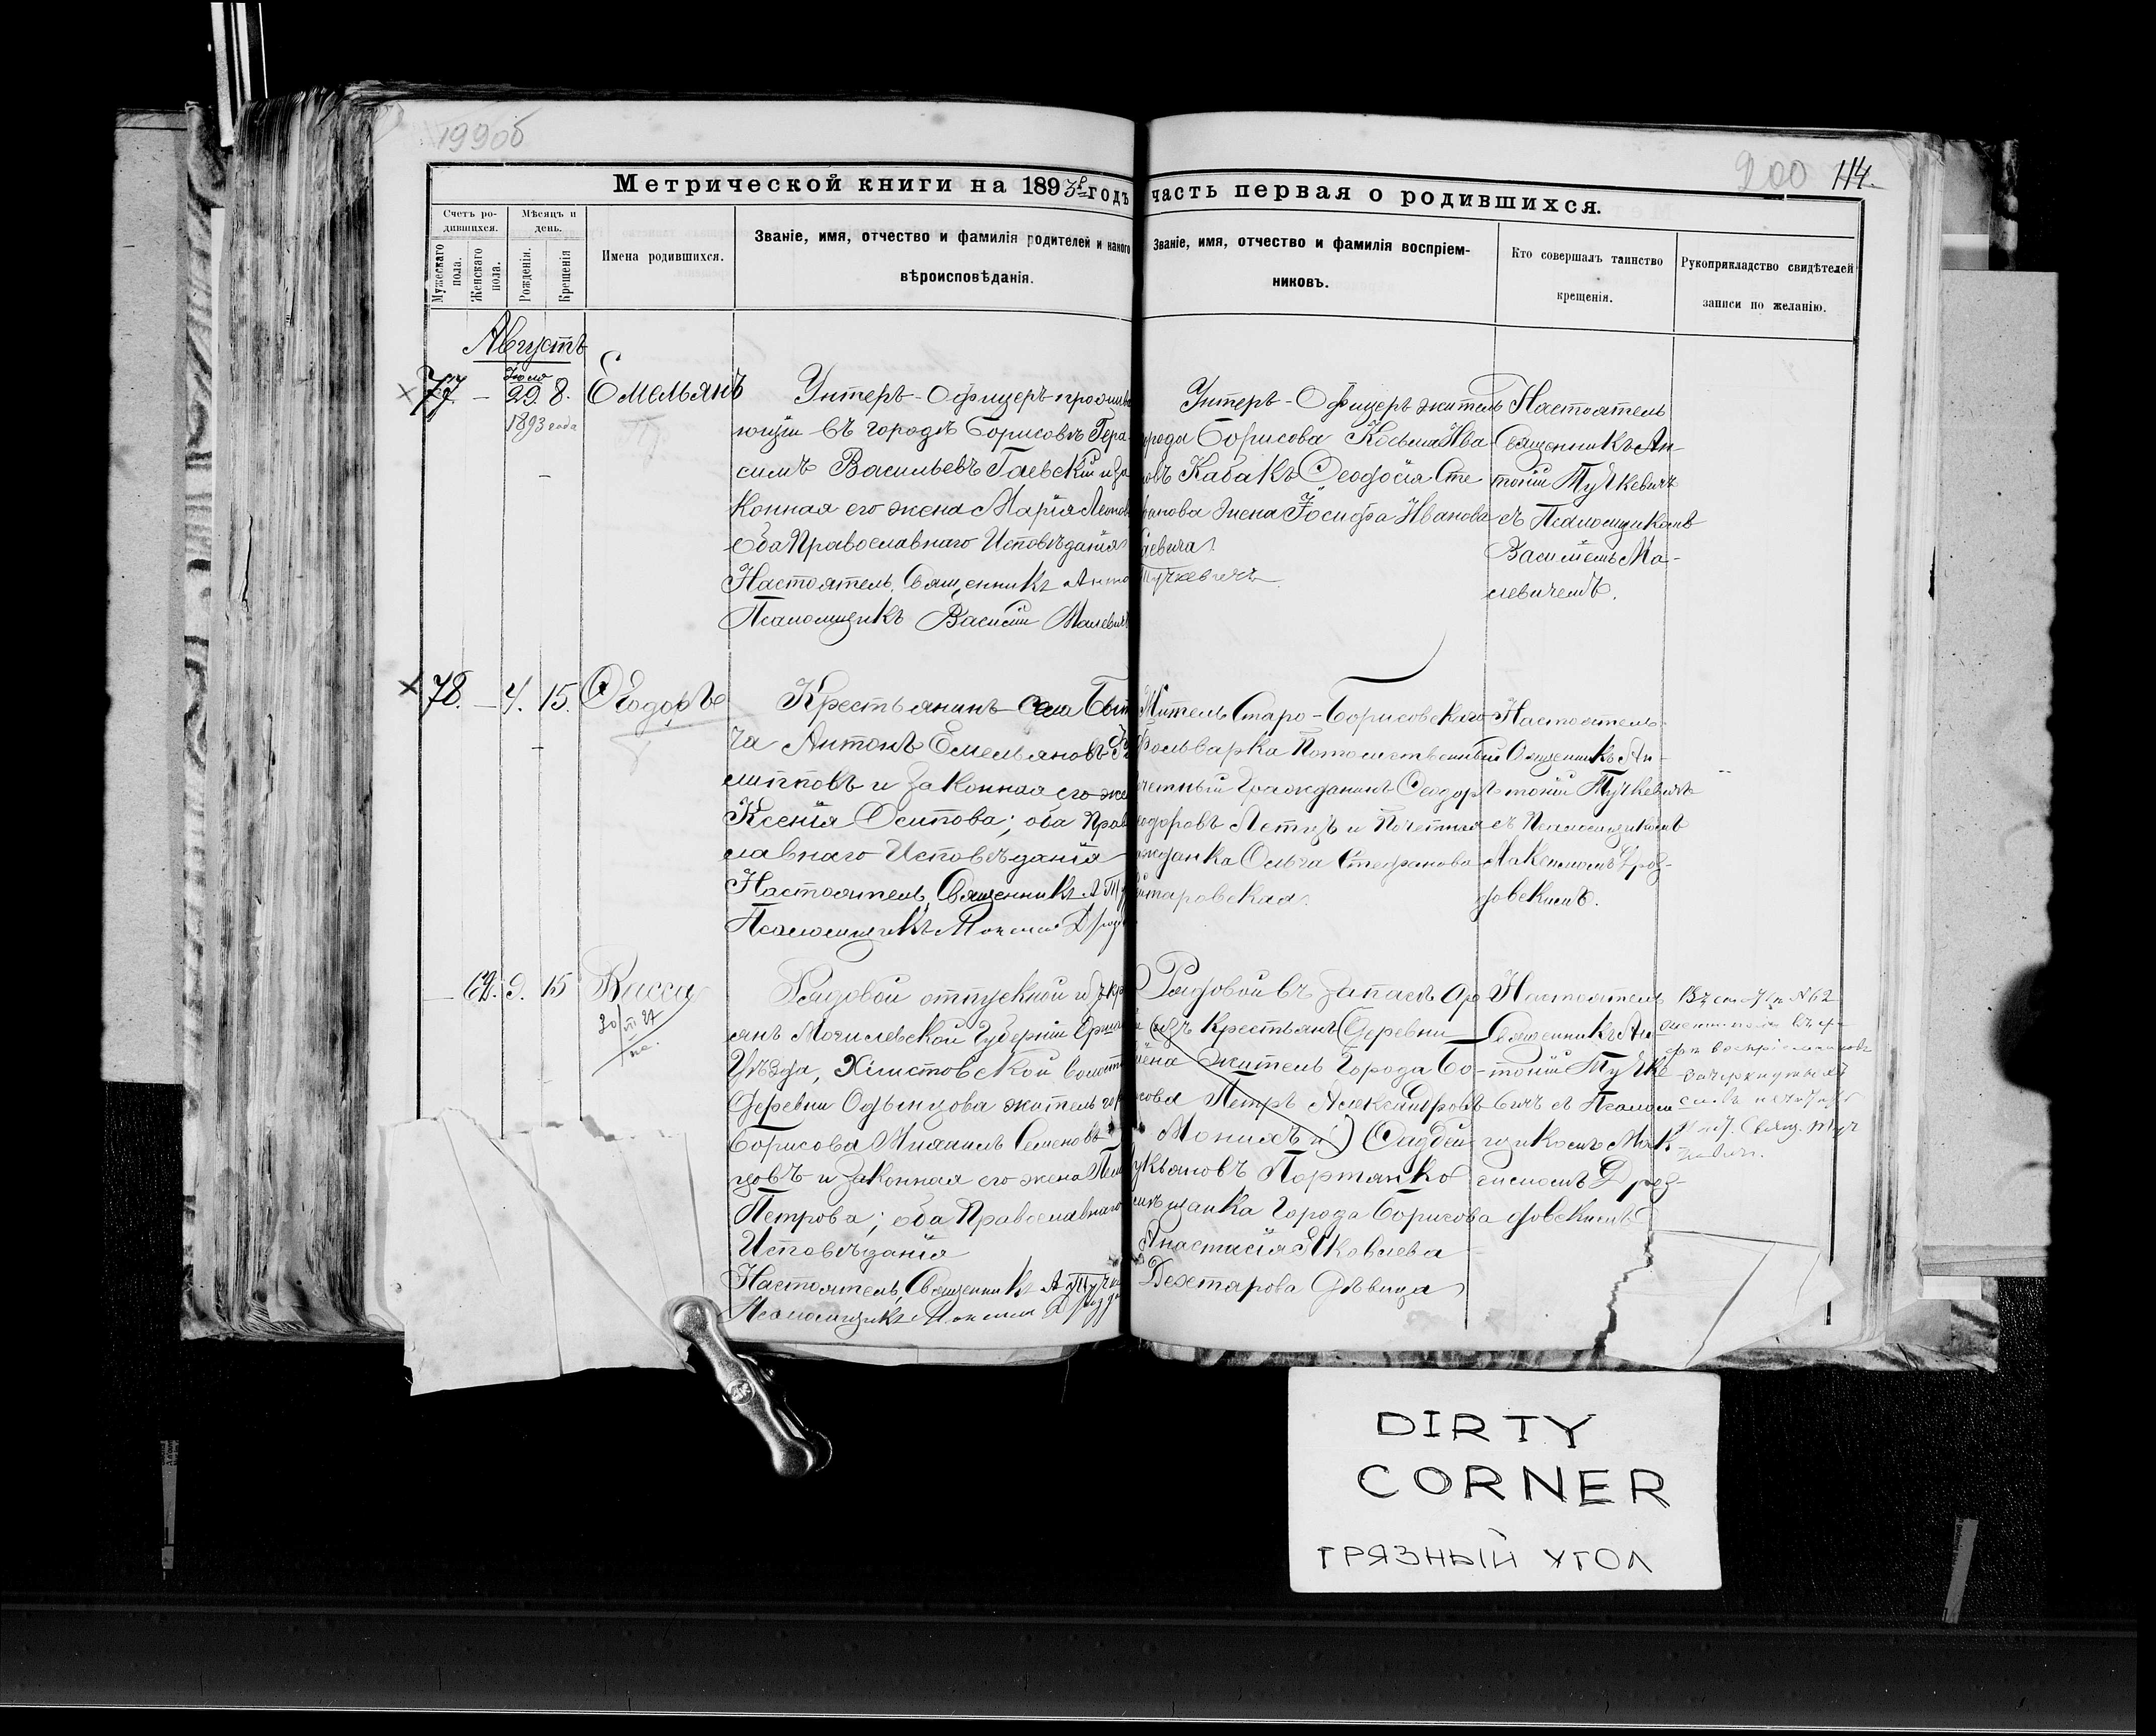 199об
200 114.
Метрической книги на 1893й годъ часть первая о родившихся.
Счетъ родившихся.
Мужескаго пола.
Женскаго пола.
Мѣсяцъ и день.
Рожденія.
Крещенія
Имена родившихся.
Званіе, имя, отчество и фамилія родителей и какого
вѣроисповѣданія.
Званіе, имя, отчество и фамилія воспріем-
никовъ.
Кто совершалъ таинство
крещенія.
Рукоприкладство свидѣтелей
записи по желанію.
Августъ
77. – Июля 29. 8. Емельянъ
1893 года
Унтеръ-Офицеръ прожива
ющій въ городѣ Борисовѣ Гера
симъ Васильевъ Гаевскій и за
конная его жена Марія Леонов
оба Православнаго Исповѣданія
Настоятель, Священникъ Анто
Псаломщикъ Василій Малевич
Унтеръ-Офицеръ житель
города Борисова Косьма Ива
новъ Кабакъ Ѳеодосія Сте
фанова жена Іосифа Иванова
аевича
Тучкевичъ
Настоятель
Священникъ Ан-
тоній Тучкевичъ
съ Псаломщикомъ
Василіемъ Ма-
левичемъ.
78. – 4. 15. Ѳеодоръ
Крестьянинъ села Быт
ча Антонъ Емельяновъ Фи
липповъ и законная его же
Ксенія Осипова; оба Прав
лавнаго Исповѣданія
Настоятель, Священникъ А Ту
Псаломщикъ Максим Дрозд
Житель Старо-Борисовскаго
Фольварка Потомственный
четный Гражданинъ Ѳеодоръ
одоровъ Летцъ и Почетная
жданка Ольга Стефанова
таровская
Настоятель
Священникъ Ан-
тоній Тучкевичъ
съ Псаломщикомъ
Максимомъ Дроз-
довскимъ.
– 62. 9. 15 Васса
20/VII 27
Рядовой отпускной изъ кр
янъ Могилевской Губерніи Орша
Уѣзда, Хлистовской волост
Деревни Одынцова житель гор
Борисова Михаилъ Семеновъ
цовъ и законная его жена Пел
Петрова; оба Православнаго
Исповѣданія
Настоятель, Священникъ А Тучк
Псаломщикъ Максим Дроздо
Рядовой въ запасѣ Ар
(изъ Крестьянъ Деревни
житель Города Бо-
сова Петръ Александровъ
Монихъ и) Фаддей
укьяновъ Портянко
мѣщанка Города Борисова
Анастасія Яковлева
Дехтярова дѣвица
Настоятель
Священникъ Ан-
тоній Тучке
вичъ съ Псалом
щикомъ Мак
симомъ Дроз-
довскимъ
Въ ст. № 62
воспріемниковъ
зачеркнутыхъ
Свящ. Туч
кевич.
DIRTY
CORNER
ГРЯЗНЫЙ УГОЛ